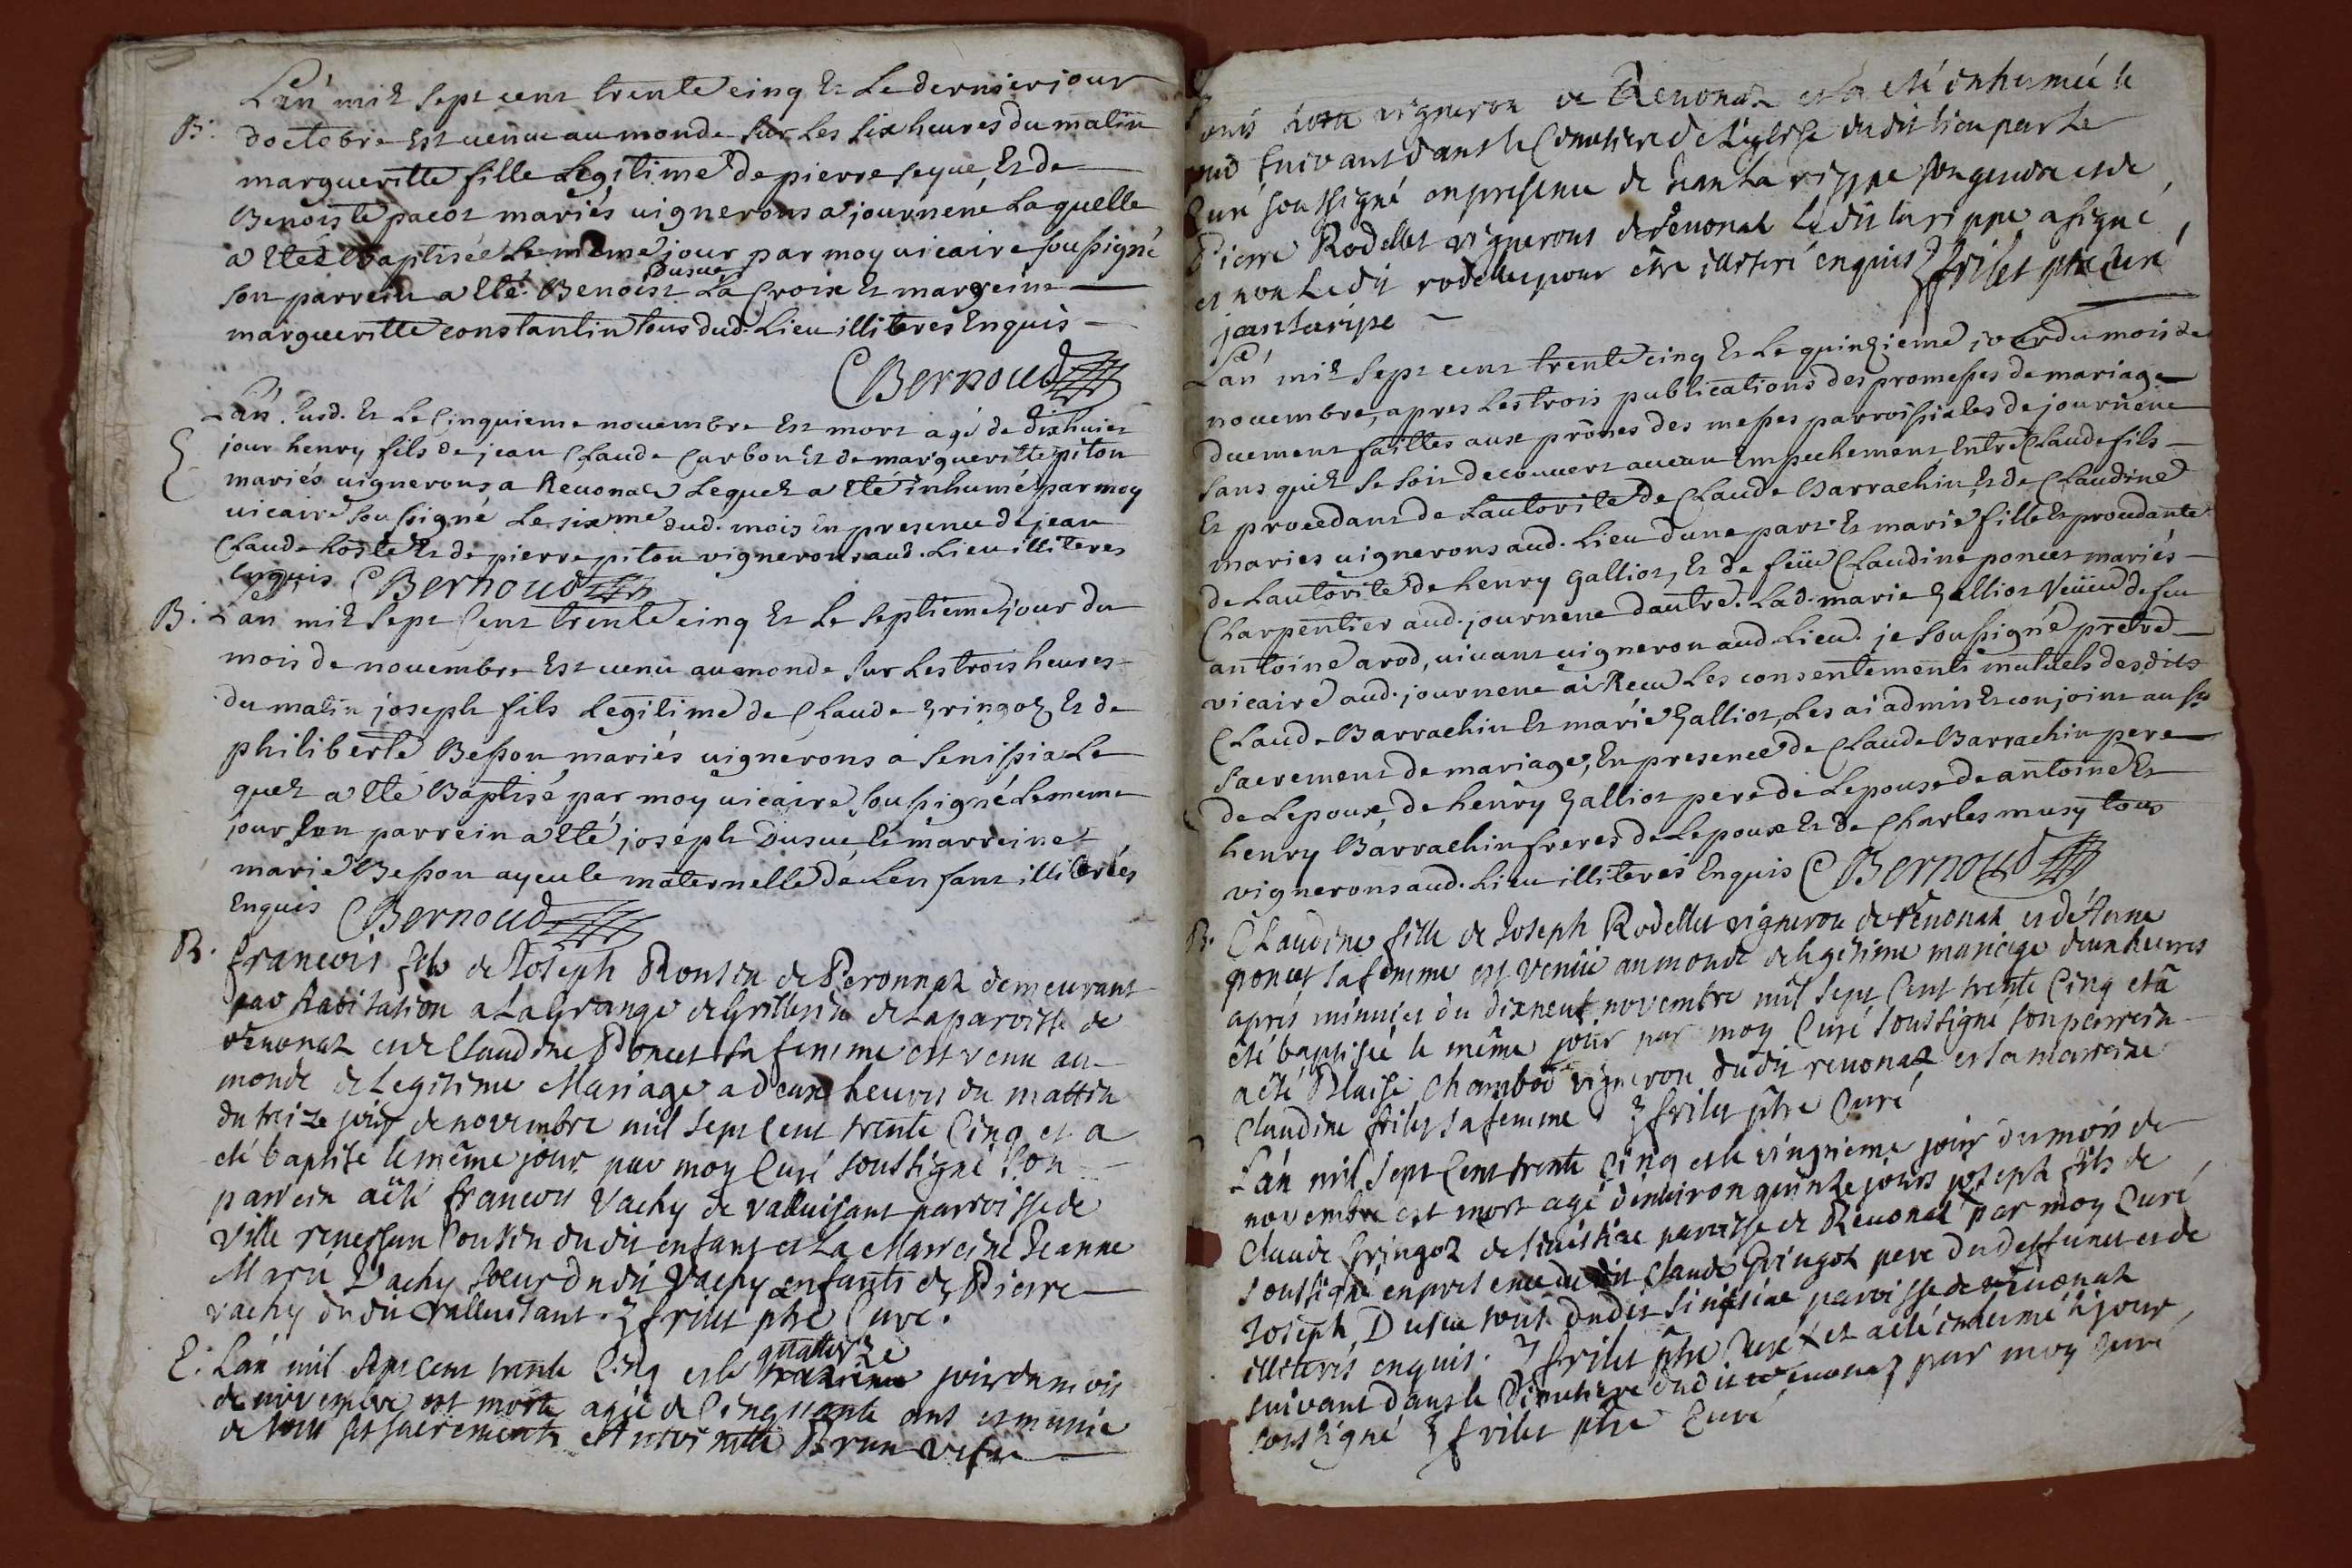 L'an mil sept cent trente cinq et Le dernier jour
B. doctobre Est venue au monde sur Les six heures du matin
margueritte fille Legitime de pierre seyue, Et de
Benoiste pacot mariés vignerons a journene Laquelle
a Eté Baptisée Le meme jour par moy vicaire soussigné
Dusuc
son parrein a Eté Benoist La Croix Et marreine
margueritte constantin tous dud. Lieu illiteres Enquis
CBernoud
Lan susd. Et Le Cinquieme novembre Est mort agé de dixhuict
E jour henry fils de jean Claude Carbon Et de margueritte piton
mariés vignerons a Revonas Lequel a Eté inhumé par moy
vicaire soussigné Le sixme dud. mois En presence de jean
Claude hoste Et de pierre piton vignerons aud. Lieu illiteres
Enquis CBernoud
B. Lan mil sept Cent trente cinq Et Le septieme jour du
mois de novembre Est venu au monde sur Les trois heures
du matin joseph fils Legitime de Claude gringoz Et de
philiberte Besson mariés vignerons a senissia Le
quel a Eté Baptisé par moy vicaire soussigné Le meme
jour son parrein a Eté joseph Dusuc, Et marreine
marie Besson ayeule maternelle de Lenfant illiterés
Enquis CBernoud
B. francois fils de Joseph Rousin de Peronnaz demeurant
par habitation a La Grange de Grillerin de La paroisse de
revonaz et de Claudine Poncet sa femme est venu au
monde de Legitime Mariage a deux heures du mattin
du treize jour de novembre mil sept cent trente Cinq et a
eté baptisé le même jour par moy Curé soussigné Son
parrein a été francois Vachy de valluisant parroisse de
Ville reversure Cousin du dit enfant et La Marreine Jeanne
Marie Vachy soeur du dit Vachy enfants de Pierre
vachy du dit valluisant. frilet ptre Curé.
quattorze
E. Lan mil sept cent trente Cinq et le jour du mois
de novembre est morte agée de Cinquante ans et munie
de tous ses sacrements Brun vefve
vigneron de Revonaz et a eté inhumée le
suivant dans le Cimetiere de L'eglise du dit lieu par Le
Curé soussigné en presence de Jean La rippe son gendre et de
Pierre Rodellet vignerons de revonat Le dit larippe a signé
et non Le dit rodellet pour être illiteré enquis frilet ptre Curé
jean laripe
Lan mil sept cent trente cinq Et Le quinzieme jour du mois de
novembre, apres Les trois publications des promesses de mariage
duement faittes aux prônes des messes parroissiales de journene
sans quil se soit decouvert aucun Empechement, Entre Claude fils
Et procedant de Lautorité de Claude Barrachin, Et de Claudine
maries vignerons aud. Lieu dune part Et marie fille Et procedante
de Lautorité de henry Galliot, Et de feüe Claudine poncet mariés
Charpentier aud. journene dautre. Lad. marie Galliot Veüve de feu
antoine arod, vivant vigneron aud Lieu. je soussigné prêtre
vicaire aud. journene ai Recu Les consentements mutuels desdits
Claude Barrachin Et marie Galliot, Les ai admis Et conjoint au St
sacrement de mariage, En presence de Claude Barrachin pere
de Lepoux, de henry Galliot pere de Lepouse de antoine Et
henry Barrachin freres de Lepoux Et de Charles musy tous
vignerons aud. Lieu illiteres Enquis CBernoud
B. Claudine fille de Joseph Rodellet vigneron de revonaz et d'Anne
poncet sa femme est venüe au monde de legitime mariage deux heures
aprés minuict du dixneuf novembre mil sept Cent trente Cinq et a
été baptisée le même jour par moy Curé soussigné son parrein
a été Blaise Chambod vigneron du dit revonaz et la marreine
Claudine frilet sa femme frilet ptre Curé
Lan mil sept Cent trente Cinq et le vingtieme jour du mois de
novembre est mort agé d'environ quinze jours joseph fils de
Claude Gringoz de sinissiae paroisse de Revonat par moy Curé
soussigné en presence du dit Claude Gringoz pere du deffunct et de
Joseph Dusuc tous du dit sinissiae paroisse de revonaz
illiterés enquis. frilet ptre Curé et a eté inhumé le jour
suivant dans le Cimetiere du dit revonaz par moy Curé
soussigné frilet ptre Curé